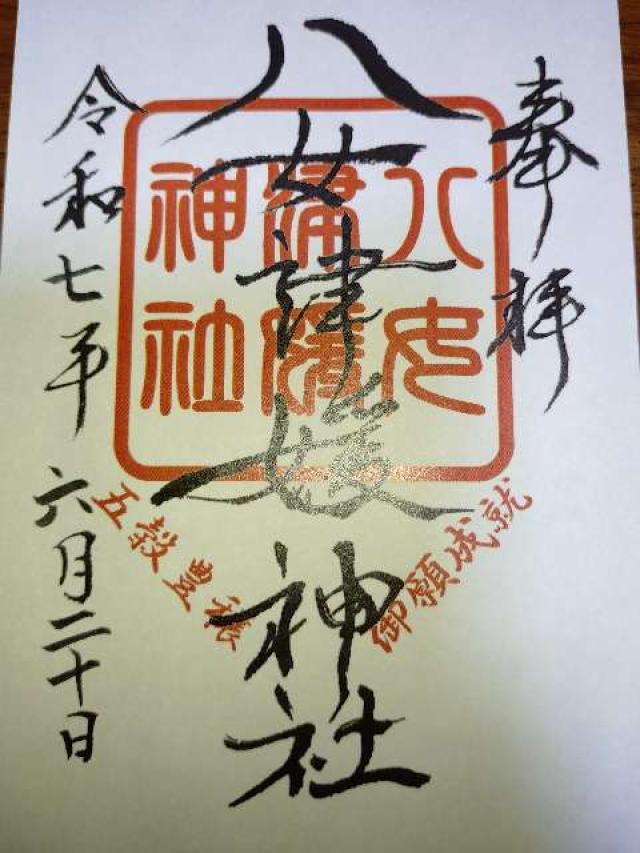 奉拝
八女津媛神社
八女
津媛
神社
御願成就
五穀豊穣
令和七年六月二十日